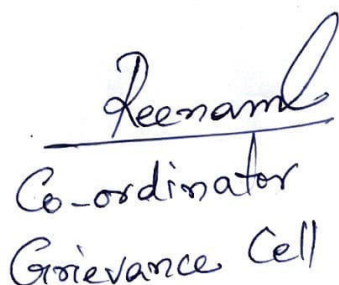 Reenaml
Co-ordinator
Grievance Cell